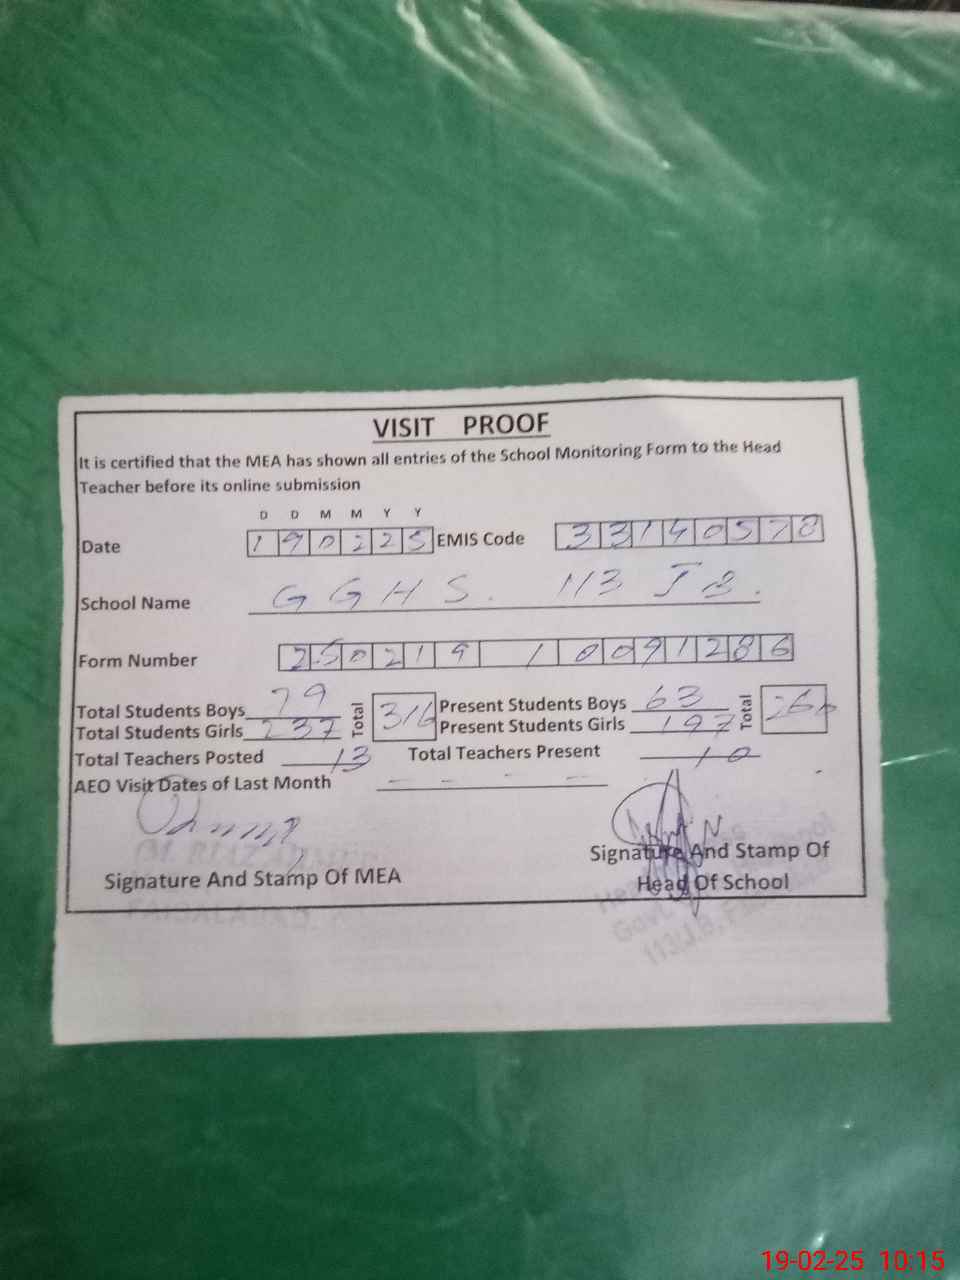 VISIT PROOF
It is certified that the MEA has shown all entries of the School Monitoring Form to the Head
Teacher before its online submission
D D M M Y Y
Date 190225 EMIS Code 33140578
School Name GGHS. 113 JB.
Form Number 250219 10091286
Total Students Boys 79 Total 316 Present Students Boys 63 Total
Total Students Girls 237 Present Students Girls 197
Total Teachers Posted 13 Total Teachers Present 10
AEO Visit Dates of Last Month - - - -
Signature And Stamp Of MEA
Signature And Stamp Of
Head Of School
FAISALABAD.
Govt.
113/J.B,
19-02-25 10:15